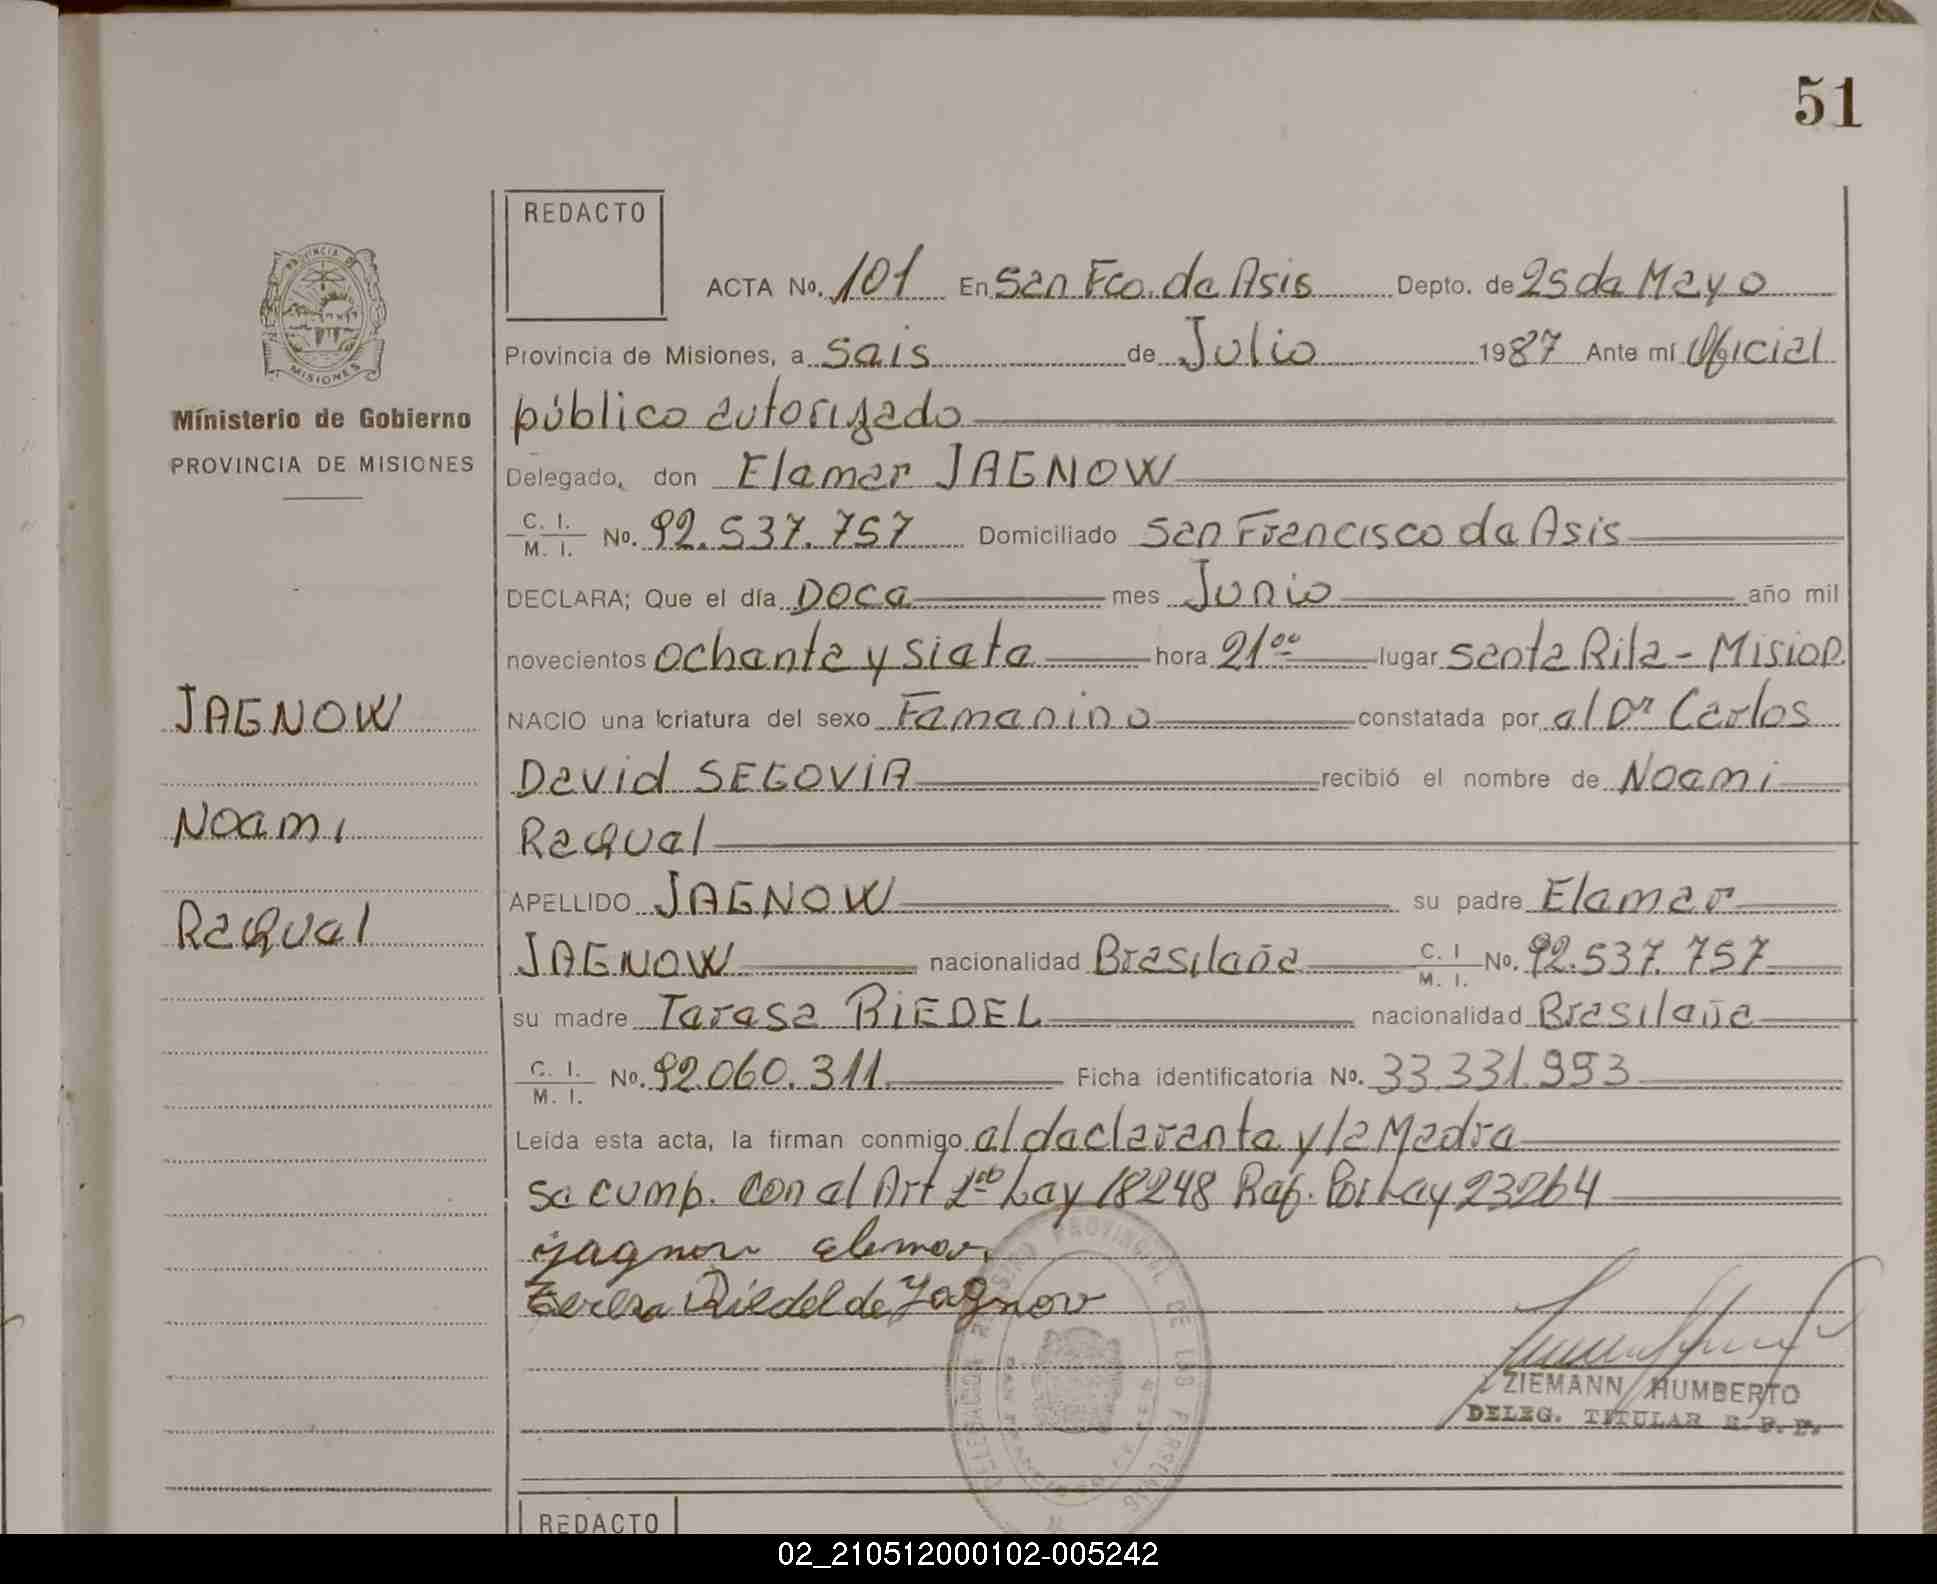 51
REDACTO
ACTA No. 101 En San Fco. de Asis Depto. de 25 de Mayo
Provincia de Misiones, a seis de Julio 1987 Ante mí Oficial
público autorizado
Ministerio de Gobierno
PROVINCIA DE MISIONES
Delegado, don Elamar JAGNOW
C. I.
M. I. No. 92.537.757 Domiciliado San Francisco de Asis
DECLARA; Que el día Doce mes Junio año mil
novecientos ochenta y siete hora 21 00 lugar Santa Rita - Mision.
JAGNOW
NACIO una criatura del sexo Femenino constatada por el Dr Carlos
David SEGOVIA recibió el nombre de Noemi
Noemi
Raquel
APELLIDO JAGNOW su padre Elamar
Raquel
JAGNOW nacionalidad Brasileña C. I
M. I. No. 92.537.757
su madre Teresa RIEDEL nacionalidad Brasileña
C. I.
M. I. No. 92.060.311 Ficha identificatoria No. 33.331.993
Leída esta acta, la firman conmigo el declarante y la Madre
se cump. con el Art 2do Ley 18248 Ref. Por Ley 23264
jagnow elemar
Teresa Riedel de Jagnow
ZIEMANN HUMBERTO
DELEG. TITULAR R. P. P.
REDACTO
02_210512000102-005242